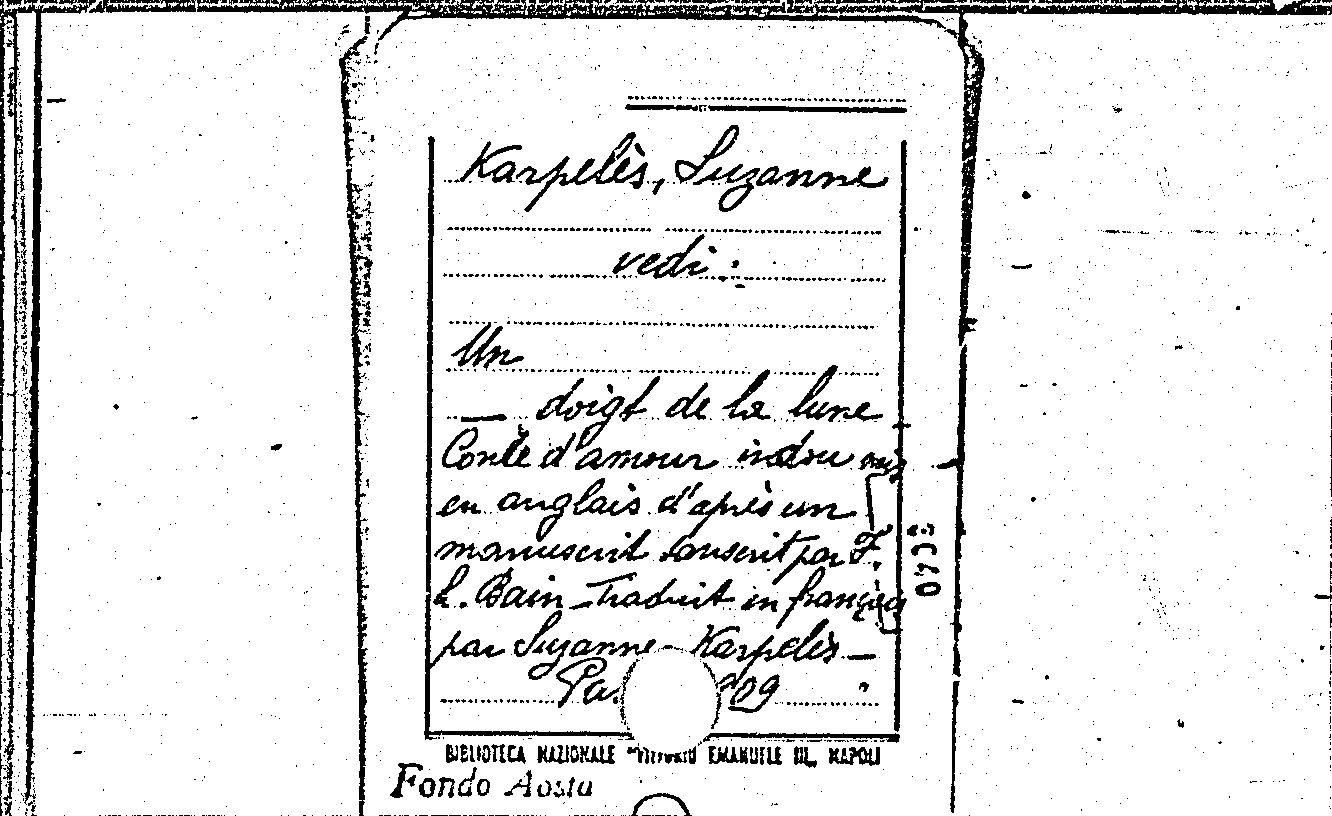 Karpelès, Suzanne
vedi:
Un
— doigt de la lune
Conte d'amour indou mis
en anglais d'après un
manuscrit sanscrit par F.
L. Bain - Traduit en français
par Suzanne - Karpelès -
909
BIBLIOTECA NAZIONALE "VITTORIO EMANUELE III. NAPOLI
Fondo Aosta